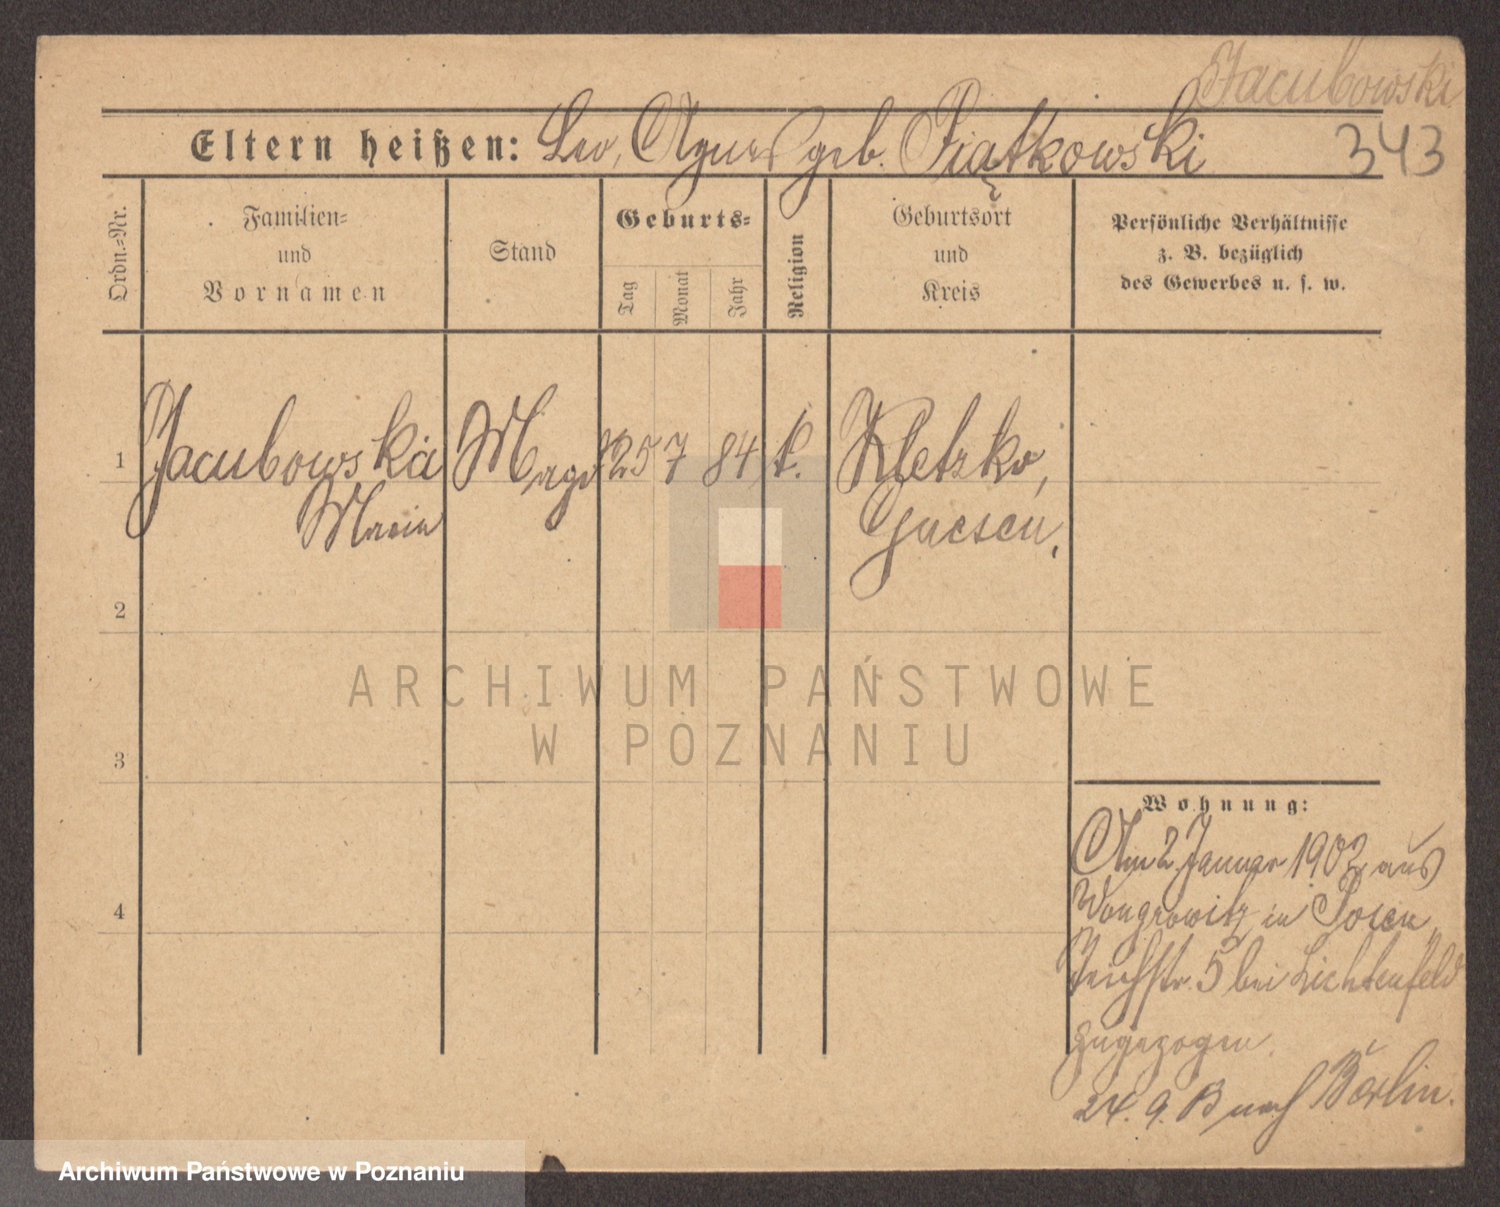 Jacubowski
343
Eltern heißen: Leo, Agnes geb. Piątkowski
Ordn.=Nr.
Familien=
und
Vornamen
Stand
Geburts=
Tag
Monat
Jahr
Religion
Geburtsort
und
Kreis
Persönliche Verhältnisse
z. B. bezüglich
des Gewerbes u. s. w.
1 Jacubowska Magd 25 7 84 k. Kletzko,
Maria Gnesen.
2
3
4
ARCHIWUM PAŃSTWOWE
W POZNANIU
Wohnung:
Am 2 Januar 1902 aus
Wongrowitz in Posen
Teichstr. 5 bei Lichtenfeld
zugezogen.
24. 9. nach Berlin.
Archiwum Państwowe w Poznaniu